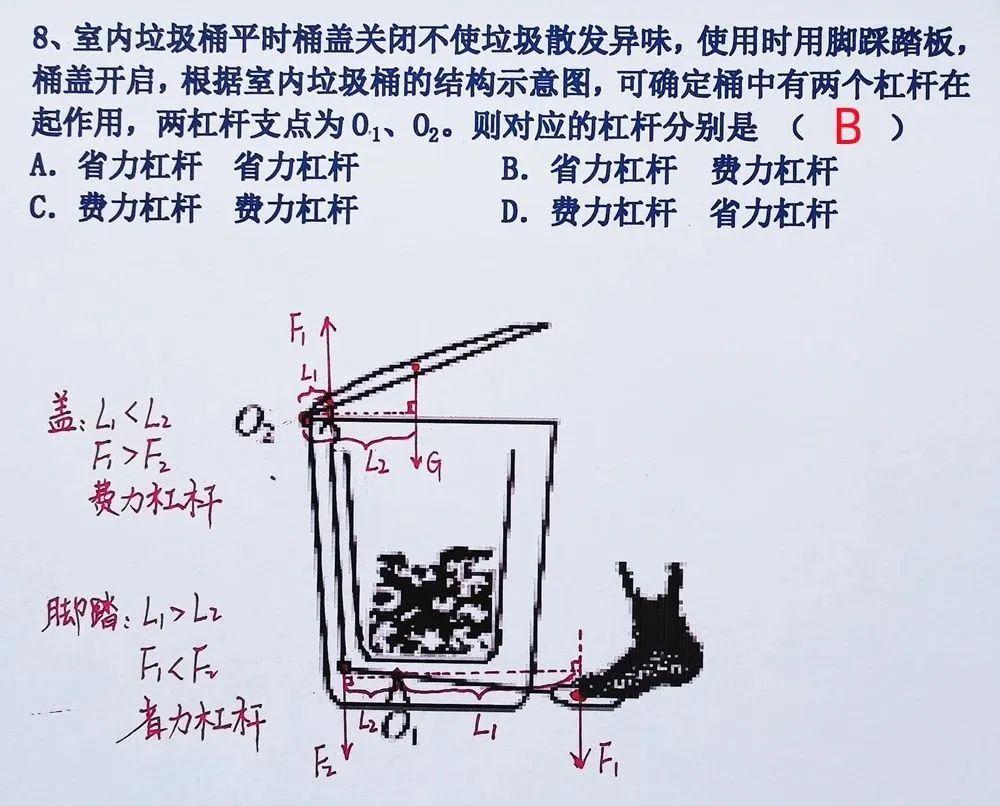 8、室内垃圾桶平时桶盖关闭不使垃圾散发异味，使用时用脚踩踏板，
桶盖开启，根据室内垃圾桶的结构示意图，可确定桶中有两个杠杆在
起作用，两杠杆支点为O₁、O₂。则对应的杠杆分别是 （ B ）
A. 省力杠杆 省力杠杆 B. 省力杠杆 费力杠杆
C. 费力杠杆 费力杠杆 D. 费力杠杆 省力杠杆
F₁
L₁
O₂
L₂
G
盖: L₁<L₂
F₁>F₂
费力杠杆
脚踏: L₁>L₂
F₁<F₂
省力杠杆
L₂
O₁
L₁
F₂
F₁